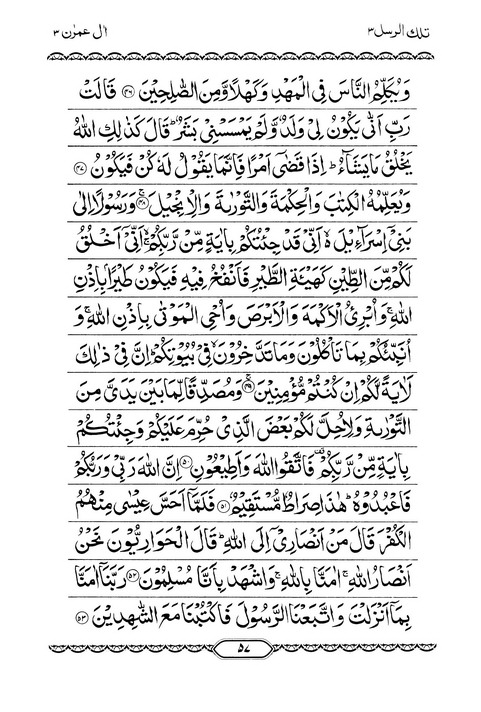 تلك الرسل ٣
اٰل عمرٰن ٣
وَيُكَلِّمُ النَّاسَ فِى الْمَهْدِ وَكَهْلًا وَّمِنَ الصّٰلِحِيْنَ ﴿۴۶﴾ قَالَتْ
رَبِّ اَنّٰى يَكُوْنُ لِىْ وَلَدٌ وَّلَمْ يَمْسَسْنِىْ بَشَرٌ ؕ قَالَ كَذٰلِكِ اللّٰهُ
يَخْلُقُ مَا يَشَآءُ ؕ اِذَا قَضٰٓى اَمْرًا فَاِنَّمَا يَقُوْلُ لَهٗ كُنْ فَيَكُوْنُ ﴿۴۷﴾
وَيُعَلِّمُهُ الْكِتٰبَ وَالْحِكْمَةَ وَالتَّوْرٰىةَ وَالْاِنْجِيْلَ ﴿۴۸﴾ وَرَسُوْلًا اِلٰى
بَنِىْٓ اِسْرَآءِيْلَ ۙ اَنِّىْ قَدْ جِئْتُكُمْ بِاٰيَةٍ مِّنْ رَّبِّكُمْ ۙ اَنِّىْٓ اَخْلُقُ
لَكُمْ مِّنَ الطِّيْنِ كَهَيْئَةِ الطَّيْرِ فَاَنْفُخُ فِيْهِ فَيَكُوْنُ طَيْرًۢا بِاِذْنِ
اللّٰهِ ۚ وَاُبْرِئُ الْاَكْمَهَ وَالْاَبْرَصَ وَاُحْىِ الْمَوْتٰى بِاِذْنِ اللّٰهِ ۚ وَ
اُنَبِّئُكُمْ بِمَا تَاْكُلُوْنَ وَمَا تَدَّخِرُوْنَ ۙ فِىْ بُيُوْتِكُمْ ؕ اِنَّ فِىْ ذٰلِكَ
لَاٰيَةً لَّكُمْ اِنْ كُنْتُمْ مُّؤْمِنِيْنَ ﴿۴۹﴾ وَمُصَدِّقًا لِّمَا بَيْنَ يَدَىَّ مِنَ
التَّوْرٰىةِ وَلِاُحِلَّ لَكُمْ بَعْضَ الَّذِىْ حُرِّمَ عَلَيْكُمْ وَجِئْتُكُمْ
بِاٰيَةٍ مِّنْ رَّبِّكُمْ ۟ فَاتَّقُوا اللّٰهَ وَاَطِيْعُوْنِ ﴿۵۰﴾ اِنَّ اللّٰهَ رَبِّىْ وَرَبُّكُمْ
فَاعْبُدُوْهُ ؕ هٰذَا صِرَاطٌ مُّسْتَقِيْمٌ ﴿۵۱﴾ فَلَمَّاۤ اَحَسَّ عِيْسٰى مِنْهُمُ
الْكُفْرَ قَالَ مَنْ اَنْصَارِىْٓ اِلَى اللّٰهِ ؕ قَالَ الْحَوَارِيُّوْنَ نَحْنُ
اَنْصَارُ اللّٰهِ ۚ اٰمَنَّا بِاللّٰهِ ۚ وَاشْهَدْ بِاَنَّا مُسْلِمُوْنَ ﴿۵۲﴾ رَبَّنَاۤ اٰمَنَّا
بِمَاۤ اَنْزَلْتَ وَاتَّبَعْنَا الرَّسُوْلَ فَاكْتُبْنَا مَعَ الشّٰهِدِيْنَ ﴿۵۳﴾
۵۷